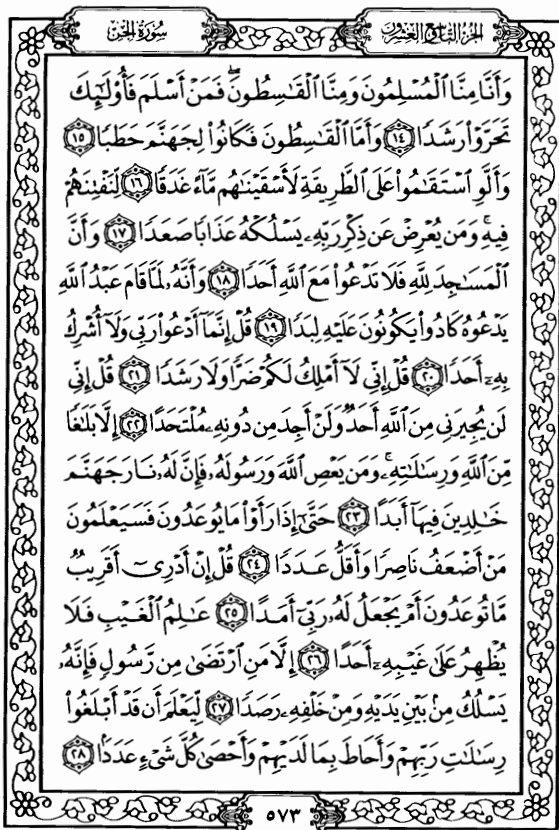 الجزء التاسع والعشرون
سورة الجن
وَأَنَّا مِنَّا الْمُسْلِمُونَ وَمِنَّا الْقَاسِطُونَ ۖ فَمَنْ أَسْلَمَ فَأُولَٰئِكَ
تَحَرَّوْا رَشَدًا ١٤ وَأَمَّا الْقَاسِطُونَ فَكَانُوا لِجَهَنَّمَ حَطَبًا ١٥
وَأَلَّوِ اسْتَقَامُوا عَلَى الطَّرِيقَةِ لَأَسْقَيْنَاهُم مَّاءً غَدَقًا ١٦ لِّنَفْتِنَهُمْ
فِيهِ ۚ وَمَن يُعْرِضْ عَن ذِكْرِ رَبِّهِ يَسْلُكْهُ عَذَابًا صَعَدًا ١٧ وَأَنَّ
الْمَسَاجِدَ لِلَّهِ فَلَا تَدْعُوا مَعَ اللَّهِ أَحَدًا ١٨ وَأَنَّهُ لَمَّا قَامَ عَبْدُ اللَّهِ
يَدْعُوهُ كَادُوا يَكُونُونَ عَلَيْهِ لِبَدًا ١٩ قُلْ إِنَّمَا أَدْعُو رَبِّي وَلَا أُشْرِكُ
بِهِ أَحَدًا ٢٠ قُلْ إِنِّي لَا أَمْلِكُ لَكُمْ ضَرًّا وَلَا رَشَدًا ٢١ قُلْ إِنِّي
لَن يُجِيرَنِي مِنَ اللَّهِ أَحَدٌ وَلَنْ أَجِدَ مِن دُونِهِ مُلْتَحَدًا ٢٢ إِلَّا بَلَاغًا
مِّنَ اللَّهِ وَرِسَالَاتِهِ ۚ وَمَن يَعْصِ اللَّهَ وَرَسُولَهُ فَإِنَّ لَهُ نَارَ جَهَنَّمَ
خَالِدِينَ فِيهَا أَبَدًا ٢٣ حَتَّىٰ إِذَا رَأَوْا مَا يُوعَدُونَ فَسَيَعْلَمُونَ
مَنْ أَضْعَفُ نَاصِرًا وَأَقَلُّ عَدَدًا ٢٤ قُلْ إِنْ أَدْرِي أَقَرِيبٌ
مَّا تُوعَدُونَ أَمْ يَجْعَلُ لَهُ رَبِّي أَمَدًا ٢٥ عَالِمُ الْغَيْبِ فَلَا
يُظْهِرُ عَلَىٰ غَيْبِهِ أَحَدًا ٢٦ إِلَّا مَنِ ارْتَضَىٰ مِن رَّسُولٍ فَإِنَّهُ
يَسْلُكُ مِن بَيْنِ يَدَيْهِ وَمِنْ خَلْفِهِ رَصَدًا ٢٧ لِّيَعْلَمَ أَن قَدْ أَبْلَغُوا
رِسَالَاتِ رَبِّهِمْ وَأَحَاطَ بِمَا لَدَيْهِمْ وَأَحْصَىٰ كُلَّ شَيْءٍ عَدَدًا ٢٨
٥٧٣